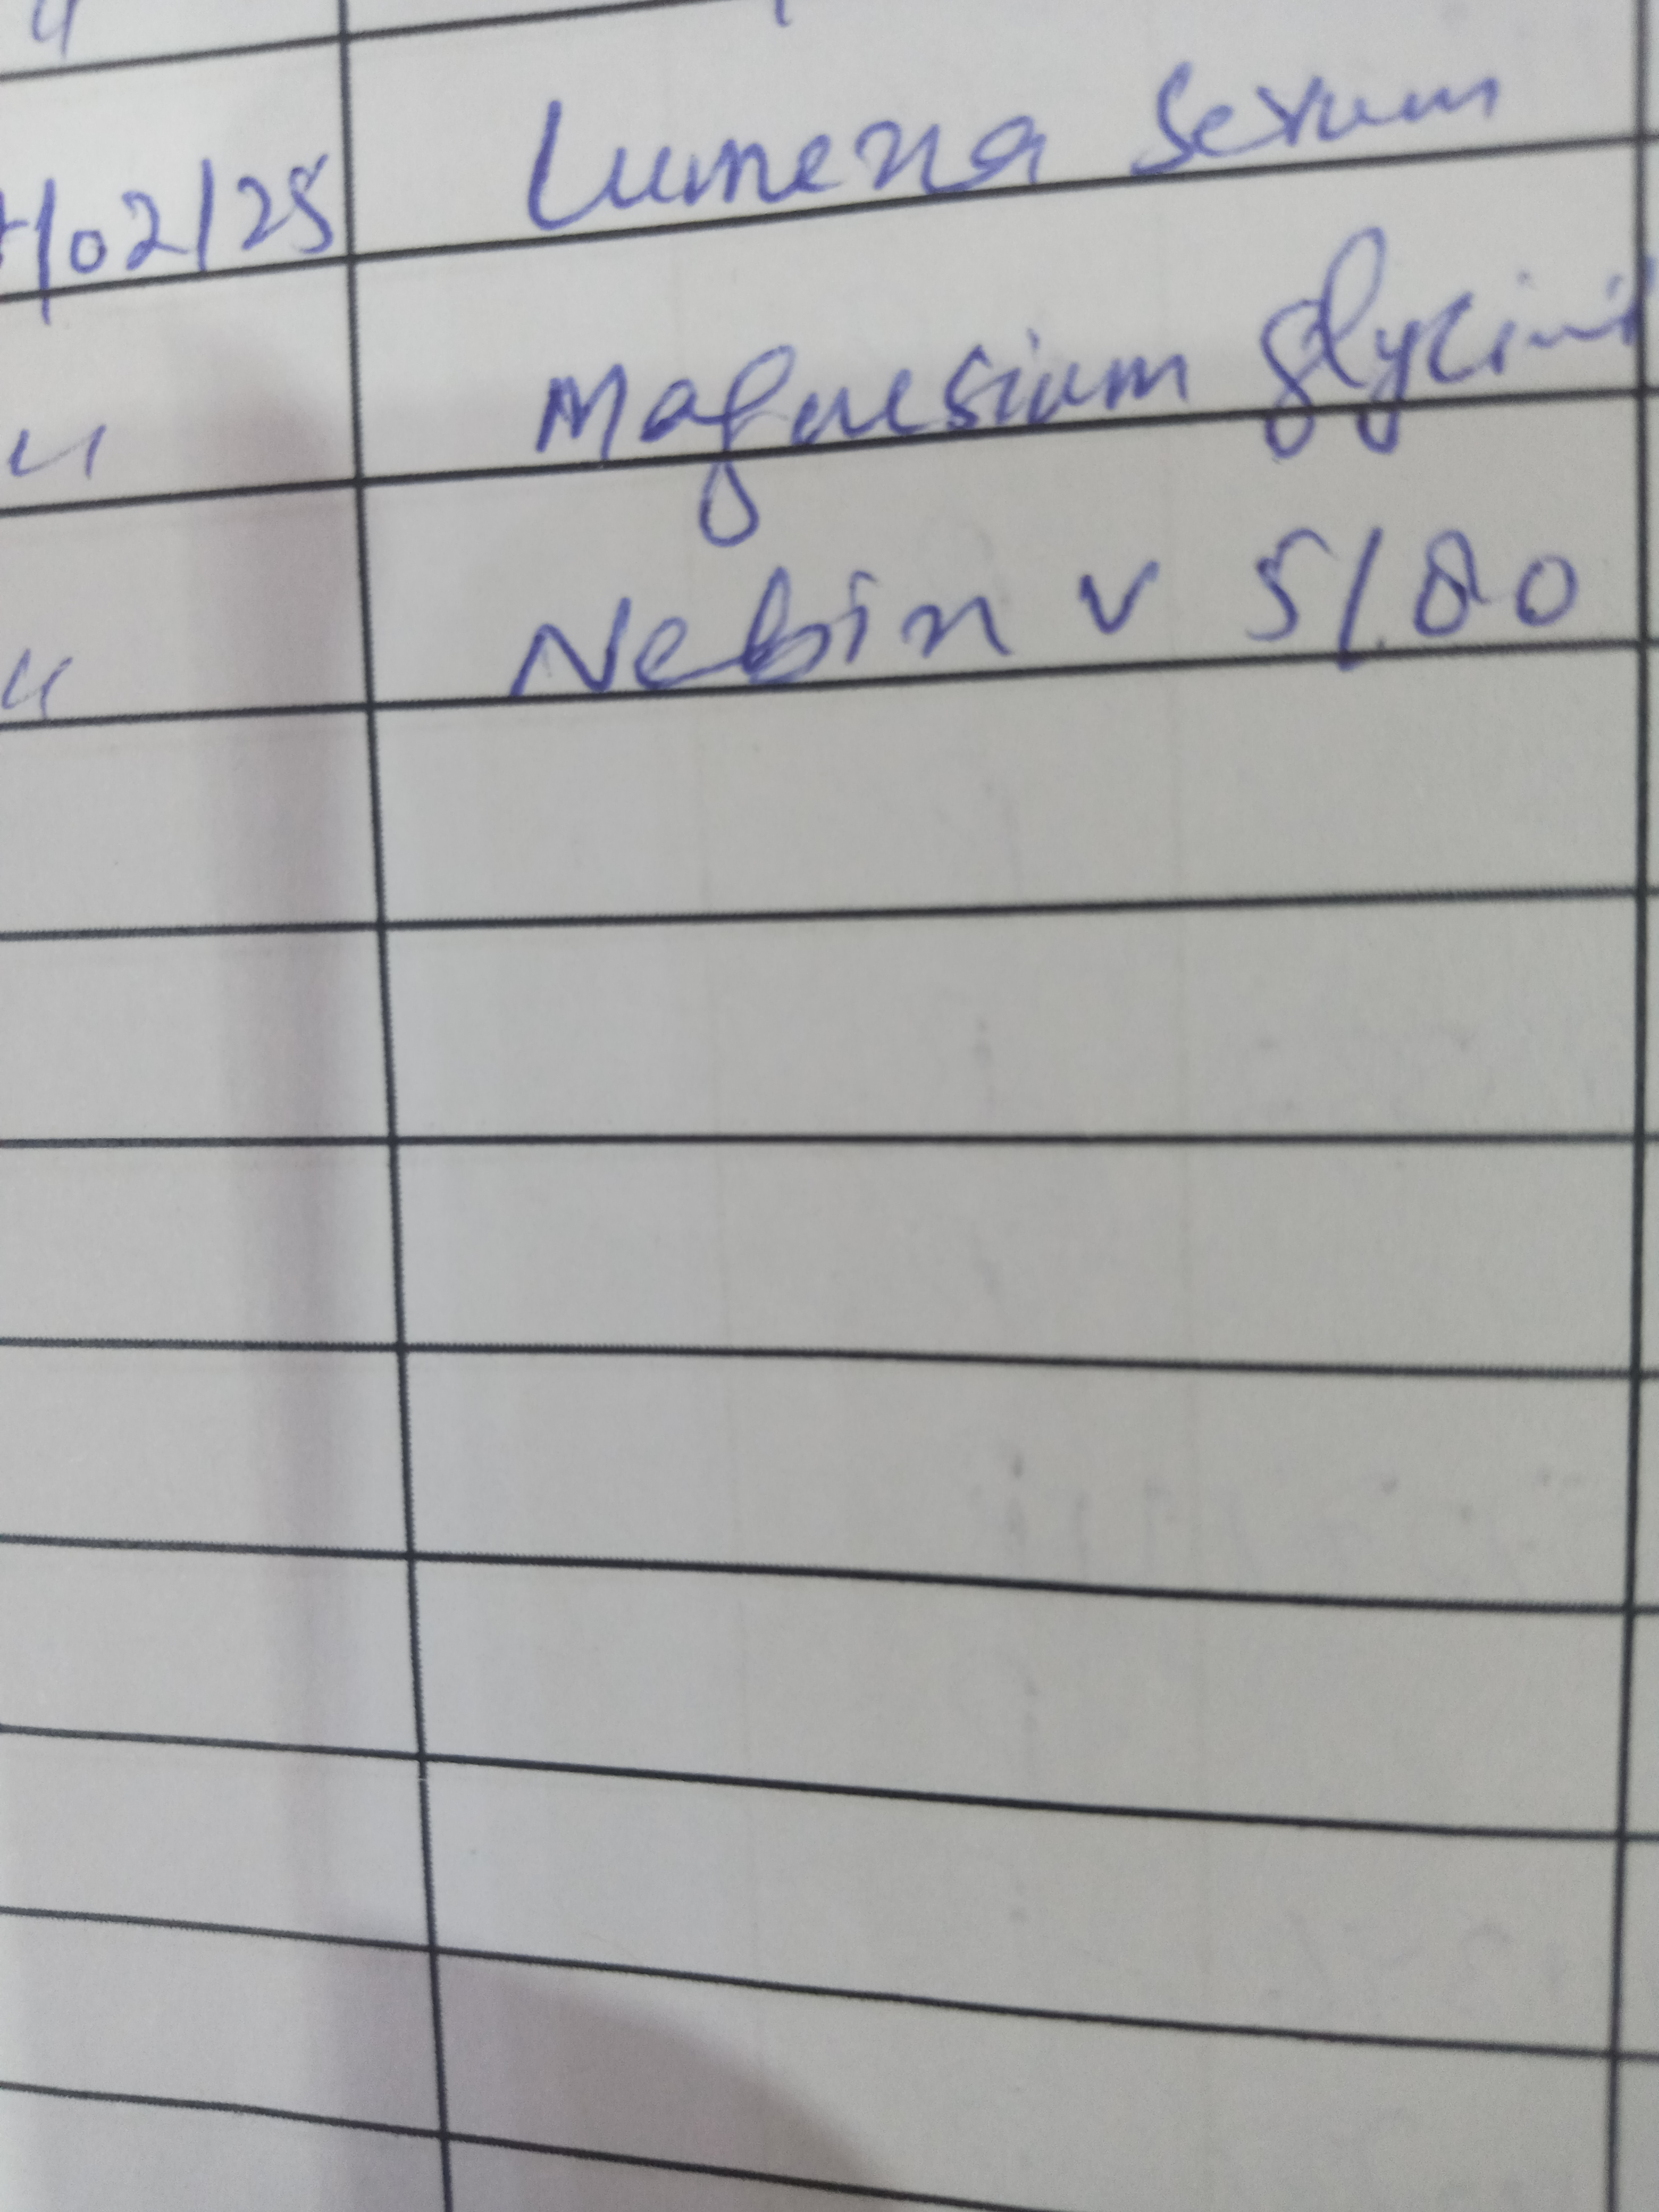 "
/02/25 Lumena Serum
" Magnesium glycinit
" Nebin v 5/80